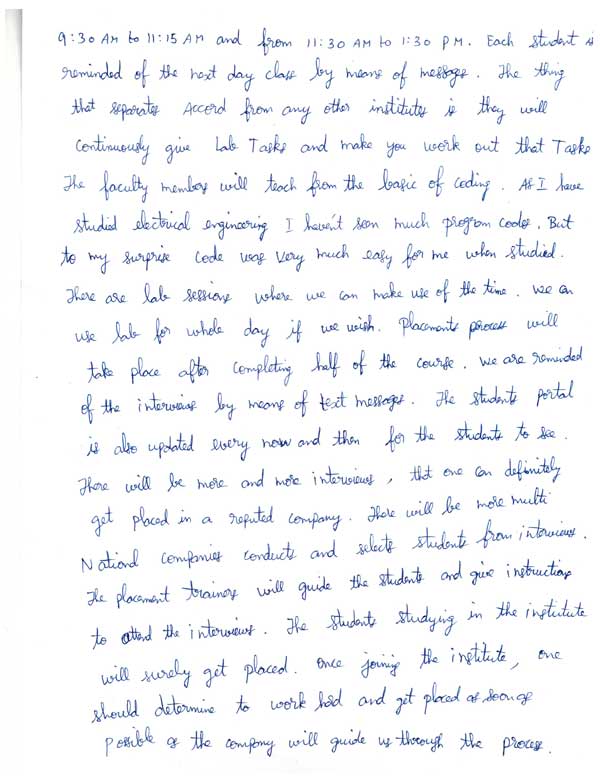 9:30 AM to 11:15 AM and from 11:30 AM to 1:30 PM. Each student is
reminded of the next day class by means of messages. The thing
that separates Accord from any other institutes is they will
Continuously give Lab Tasks and make you work out that Tasks
The faculty members will teach from the basic of coding. As I have
studied electrical engineering I haven't seen much program codes. But
to my surprise code was very much easy for me when studied.
There are lab sessions where we can make use of the time. we can
use lab for whole day if we wish. Placements process will
take place after completing half of the course. we are reminded
of the interviews by means of text messages. The students portal
is also updated every now and then for the students to see.
There will be more and more interviews, that one can definitely
get placed in a reputed company. There will be more multi
National companies conducts and selects students from interviews.
The placement trainers will guide the students and give instructions
to attend the interviews. The students studying in the institute
will surely get placed. Once joining the institute, one
should determine to work hard and get placed as soon as
possible as the company will guide us through the process.